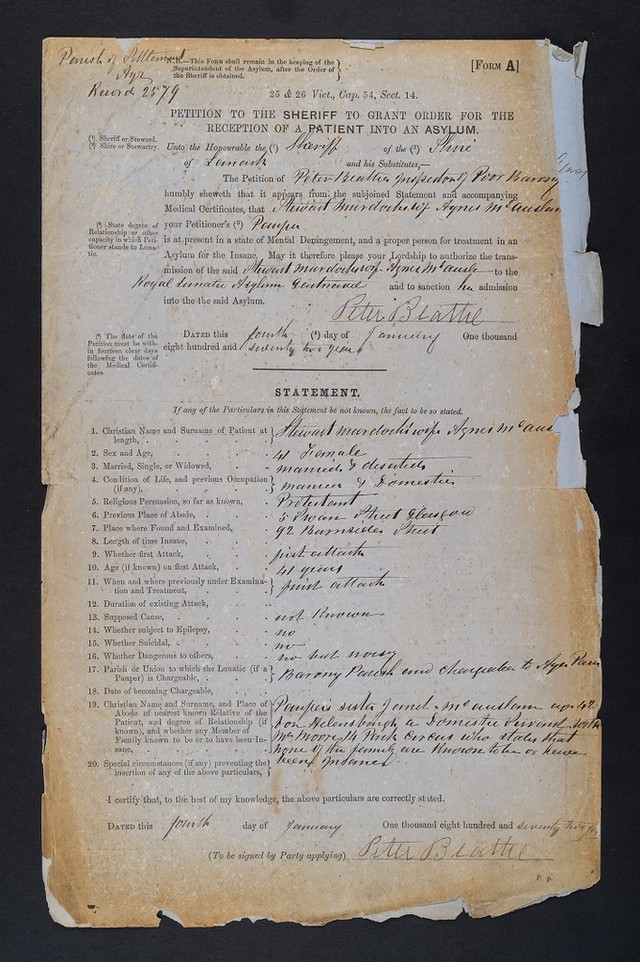 Parish of Settlement
Ayr
Record 2579
N.B.—This Form shall remain in the keeping of the
Superintendent of the Asylum, after the Order of
the Sheriff is obtained.
[Form A]
25 & 26 Vict., Cap. 54, Sect. 14.
PETITION TO THE SHERIFF TO GRANT ORDER FOR THE
RECEPTION OF A PATIENT INTO AN ASYLUM.
(¹) Sheriff or Steward.
(²) Shire or Stewartry.
Unto the Honourable the (¹) Sheriff of the (²) Shire
of Lanark and his Substitutes,—
The Petition of Peter Beattie Inspector of Poor Barony
humbly sheweth that it appears from the subjoined Statement and accompanying
Medical Certificates, that Stewart Murdoch wife Agnes McAuslan
(³) State degree of
Relationship or other
capacity in which Peti-
tioner stands to Luna-
tic.
your Petitioner's (³) Pauper
is at present in a state of Mental Derangement, and a proper person for treatment in an
Asylum for the Insane. May it therefore please your Lordship to authorize the trans-
mission of the said Stewart Murdoch wife Agnes McAusla to the
Royal Lunatic Asylum Gartnavel and to sanction her admission
into the said Asylum.
Peter Beattie
(⁴) The date of the
Petition must be with-
in fourteen clear days
following the dates of
the Medical Certifi-
cates.
Dated this fourth (⁴) day of January One thousand
eight hundred and seventy two years
STATEMENT.
If any of the Particulars in this Statement be not known, the fact to be so stated.
1. Christian Name and Surname of Patient at length, Stewart Murdoch's wife Agnes McAus
2. Sex and Age, 41 Female
3. Married, Single, or Widowed, married & deserted
4. Condition of Life, and previous Occupation (if any), married & Domestic
5. Religious Persuasion, so far as known, Protestant
6. Previous Place of Abode, 5 Swan Street Glasgow
7. Place where Found and Examined, 92 Burnside Street
8. Length of time Insane,
9. Whether first Attack, first attack
10. Age (if known) on first Attack, 41 years
11. When and where previously under Examina-tion and Treatment, first attack
12. Duration of existing Attack,
13. Supposed Cause, not Known
14. Whether subject to Epilepsy, no
15. Whether Suicidal, no
16. Whether Dangerous to others, no but noisy
17. Parish or Union to which the Lunatic (if a Pauper) is Chargeable, Barony Parish and Chargeable to Ayr Paris
18. Date of becoming Chargeable,
19. Christian Name and Surname, and Place of Abode of nearest known Relative of the Patient, and degree of Relationship (if known), and whether any Member of Family known to be or to have been In-sane,
Paupers sister Janet McAuslan age 42
born Helensburgh a Domestic Servant with
Mr Moore 14 Park Circus who states that
none of the family are Known to be or have
been Insane
20. Special circumstances (if any) preventing the insertion of any of the above particulars,
I certify that, to the best of my knowledge, the above particulars are correctly stated.
Dated this fourth day of January One thousand eight hundred and seventy two
(To be signed by Party applying) Peter Beattie
P. P.